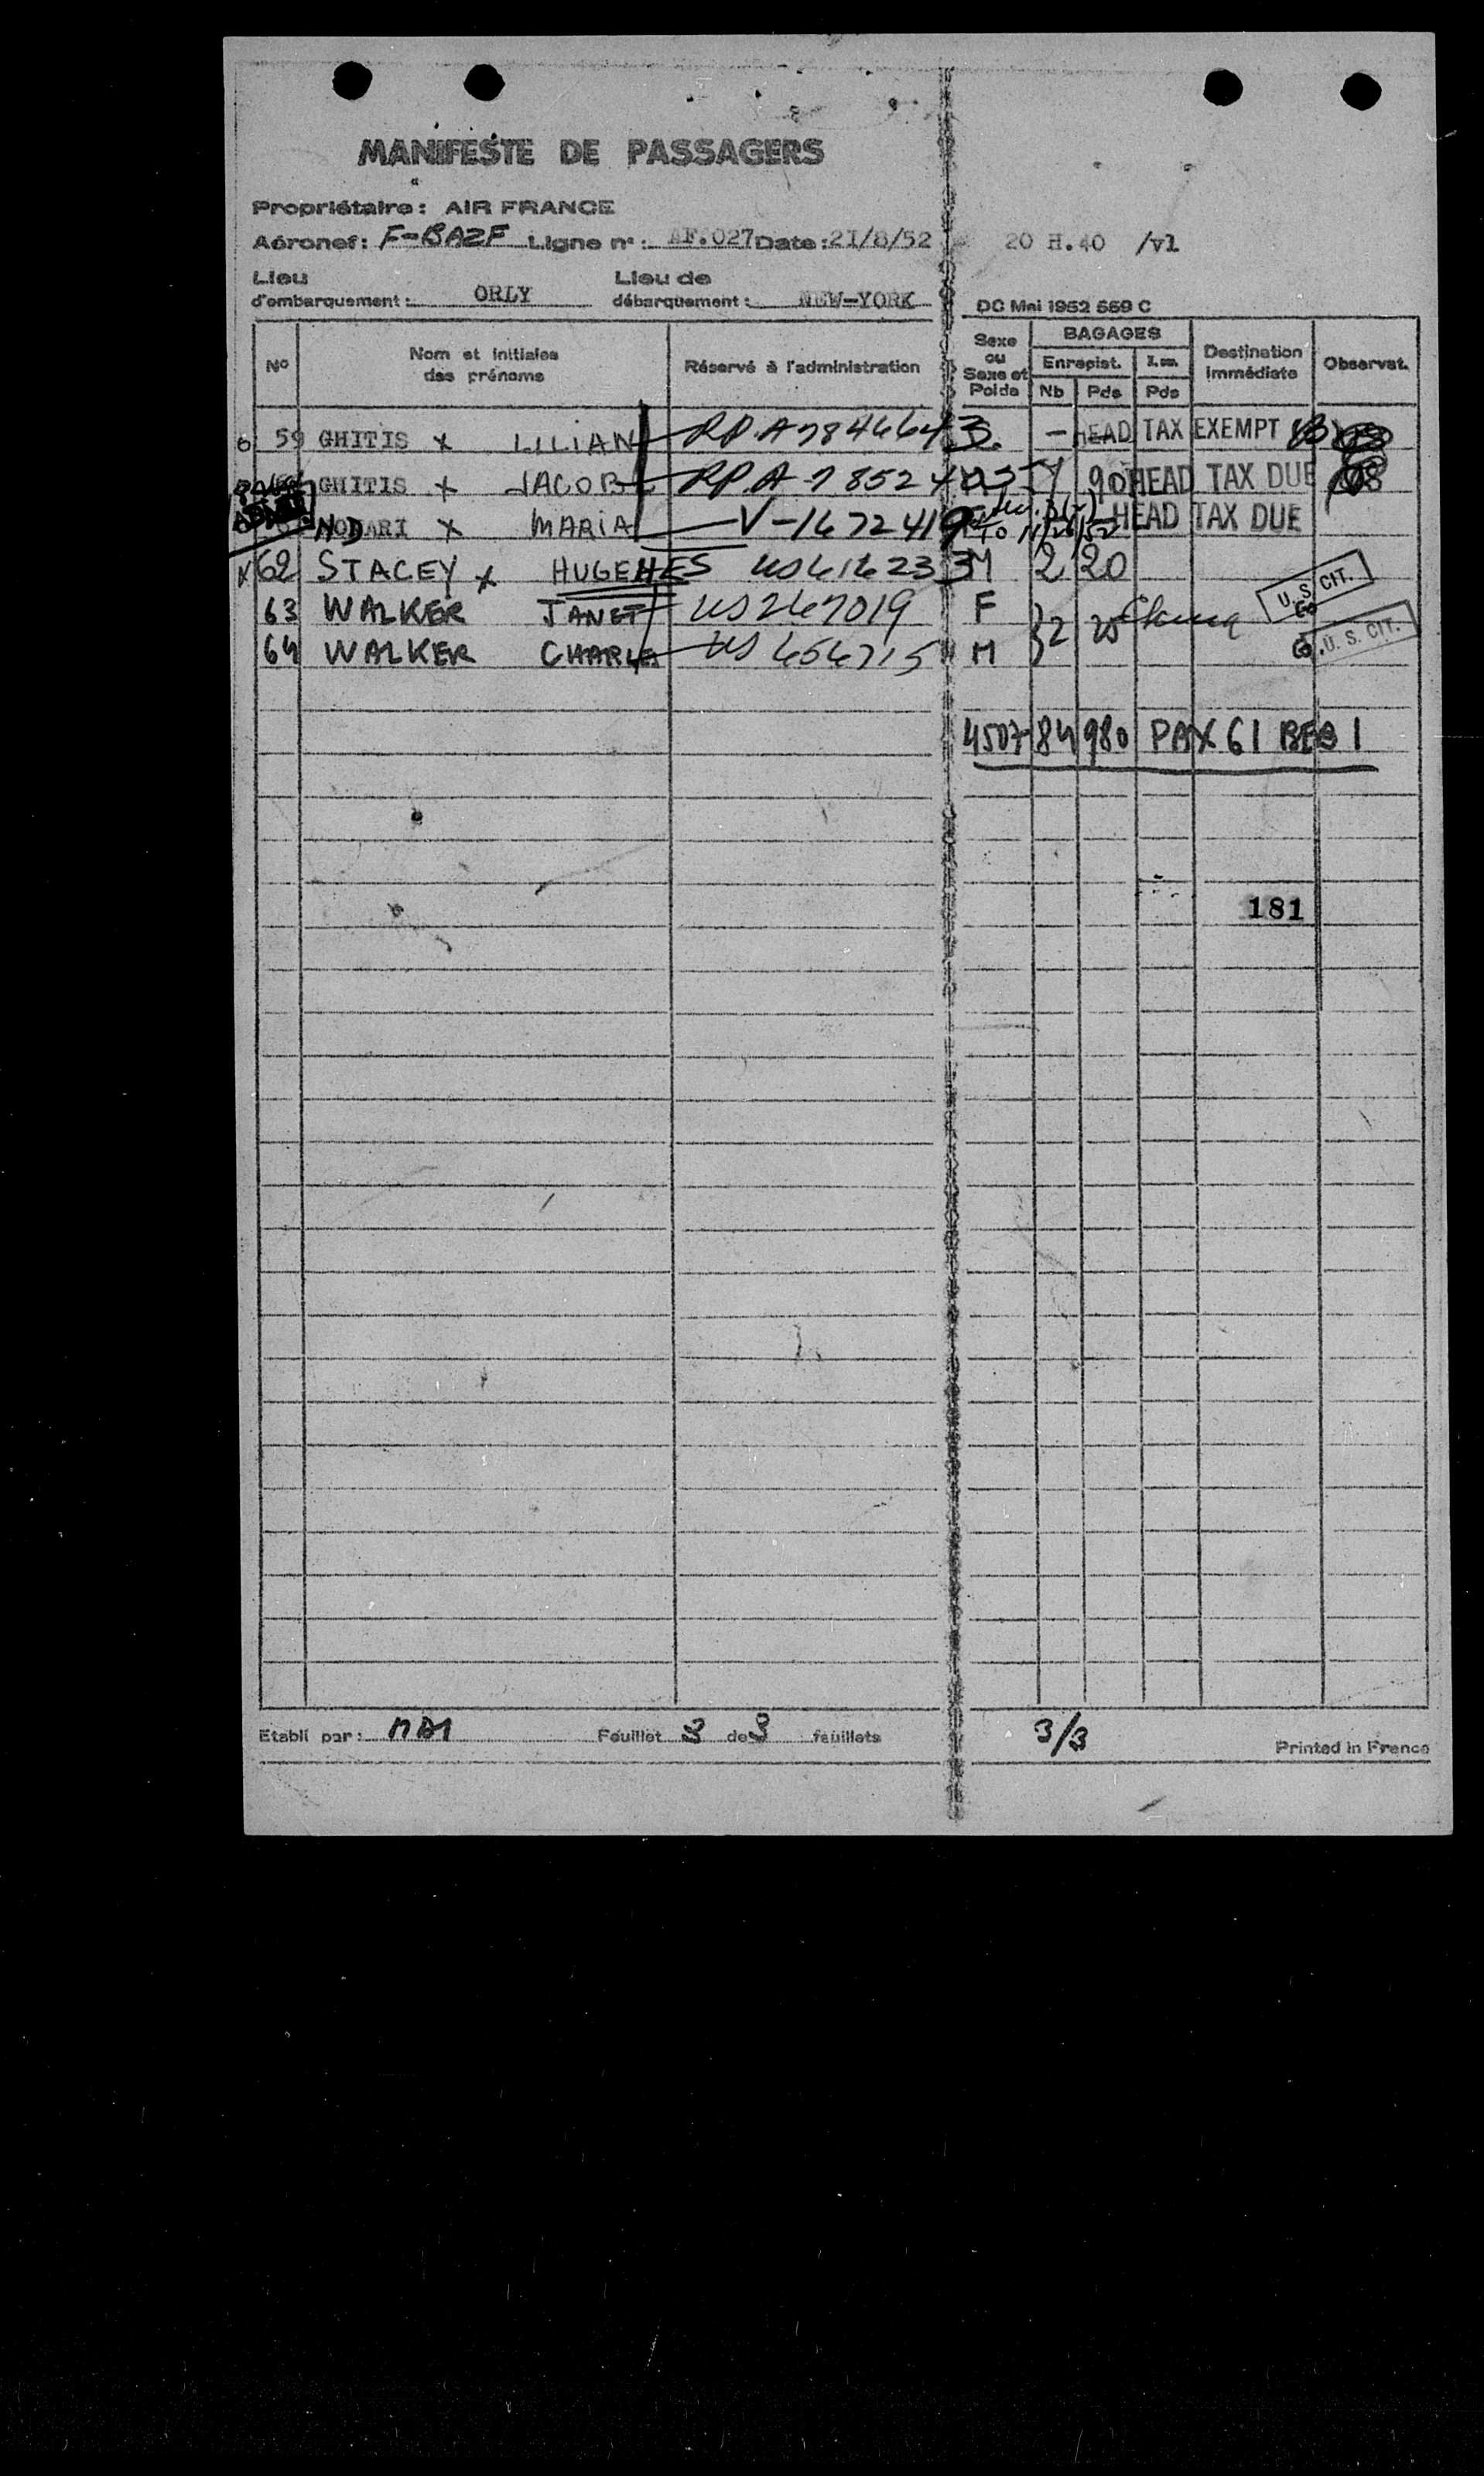 MANIFESTE DE PASSAGERS
Propriétaire: AIR FRANCE
Aéronef: F-BAZF Ligne n°: AF.027 Date: 21/8/52 20 H.40 /vl
Lieu d'embarquement: ORLY Lieu de débarquement: NEW-YORK
DC Mai 1952 559 C
N° Nom et initiales des prénoms Réservé à l'administration Sexe ou Sexe et Poids BAGAGES Enregist. Nb Pds Pds Destination immédiate Observat.
59 GHITIS x LILIAN RP.A7846643 - HEAD TAX EXEMPT
GHITIS x JACOB RP.A-785240 90 HEAD TAX DUE
x MARIA V-1672419 HEAD TAX DUE
x 62 STACEY x HUGEHES US 616233 M 2 20
63 WALKER JANET US 267019 F U.S. CIT.
64 WALKER US 656715 M 2 25 U.S. CIT.
4507 84 980 PAX 61 BEB 1
181
Etabli par: Feuillet 3 de 3 feuillets 3/3 Printed in France